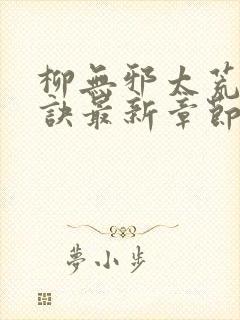 柳無邪太荒
訣最新章節
夢小步